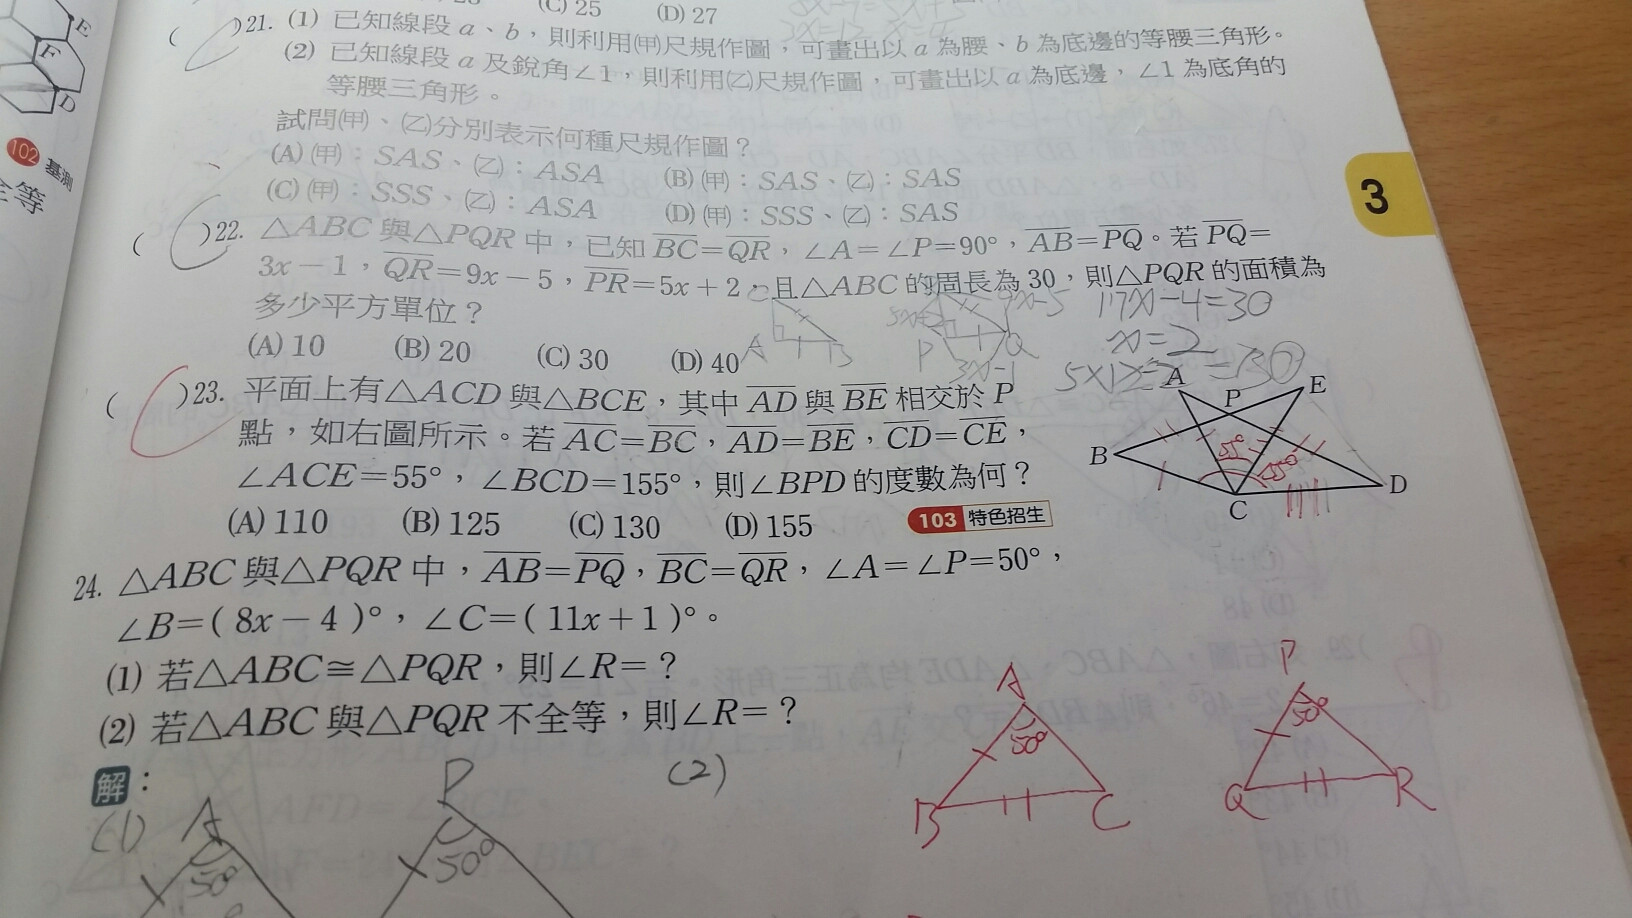 (C) 25 (D) 27
( )21. (1) 已知線段 a、b,則利用(甲)尺規作圖,可畫出以 a 為腰、b 為底邊的等腰三角形。
(2) 已知線段 a 及銳角∠1,則利用(乙)尺規作圖,可畫出以 a 為底邊,∠1 為底角的
等腰三角形。
試問(甲)、(乙)分別表示何種尺規作圖?
(A) (甲):SAS、(乙):ASA (B) (甲):SAS、(乙):SAS
(C) (甲):SSS、(乙):ASA (D) (甲):SSS、(乙):SAS
( )22. △ABC 與△PQR 中,已知 B̅C̅=Q̅R̅,∠A=∠P=90°,A̅B̅=P̅Q̅。若 P̅Q̅=
3x-1,Q̅R̅=9x-5,P̅R̅=5x+2,且△ABC 的周長為 30,則△PQR 的面積為
多少平方單位?
(A) 10 (B) 20 (C) 30 (D) 40
C A B
P Q 3x-1 9x-5
17x-4=30
x=2
( )23. 平面上有△ACD 與△BCE,其中 A̅D̅ 與 B̅E̅ 相交於 P
點,如右圖所示。若 A̅C̅=B̅C̅,A̅D̅=B̅E̅,C̅D̅=C̅E̅,
∠ACE=55°,∠BCD=155°,則∠BPD 的度數為何?
(A) 110 (B) 125 (C) 130 (D) 155
103 特色招生
A P E
B 55°
C D
24. △ABC 與△PQR 中,A̅B̅=P̅Q̅,B̅C̅=Q̅R̅,∠A=∠P=50°,
∠B=( 8x-4 )°,∠C=( 11x+1 )°。
(1) 若△ABC≅△PQR,則∠R=?
(2) 若△ABC 與△PQR 不全等,則∠R=?
解:
(1) A 50° P 50° (2)
A 50° B C
P 50° Q R
3
E
F
D
102 基測
全等